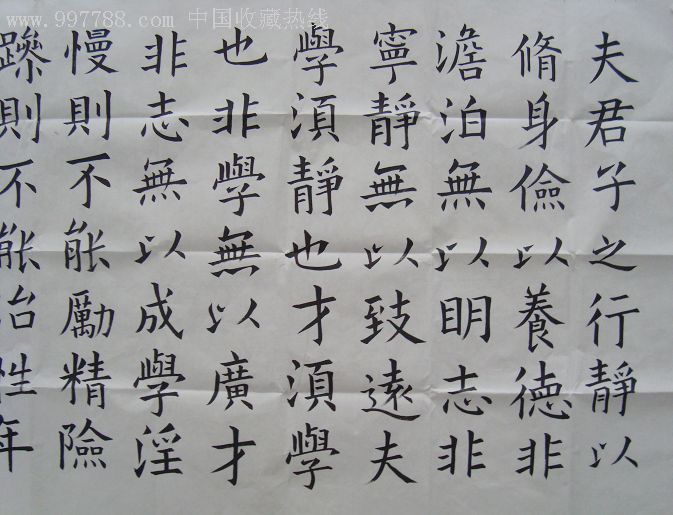 www.997788.com 中国收藏热线
夫君子之行靜以
脩身儉以養德非
澹泊無以明志非
寧靜無以致遠夫
學須靜也才須學
也非學無以廣才
非志無以成學淫
慢則不能勵精險
躁則不能治性年